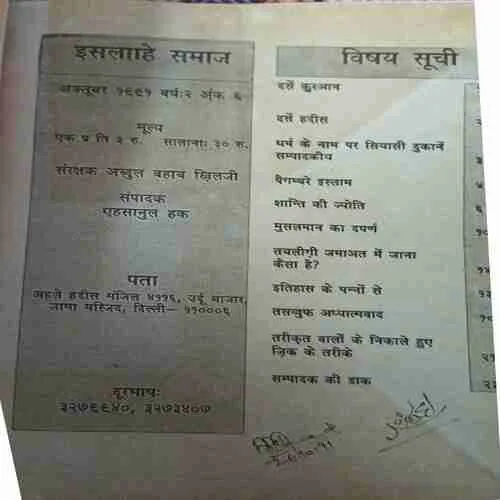 इसलाहे समाज
अक्तूबर १९९१ वर्ष:२ अंक ६
मूल्य
एक प्रति ३ रु. सालाना: ३० रु.
संरक्षक अब्दुल वहाब खिलजी
संपादक
एहसानुल हक
पता
अहले हदीस मंजिल ४११६, उर्दू बाजार,
जामा मस्जिद, दिल्ली— ११०००६
दूरभाष:
३२७६६४०, ३२७३४०७
विषय सूची
दर्से कुरआन
दर्से हदीस
धर्म के नाम पर सियासी दुकानें
सम्पादकीय
पैगम्बरे इस्लाम
शान्ति की ज्योति
मुसलमान का दर्पण
तबलीगी जमाअत में जाना
कैसा है?
इतिहास के पन्नों से
तसव्वुफ अध्यात्मवाद
तरीकृत वालों के निकाले हुए
ज़िक्र के तरीके
सम्पादक की डाक